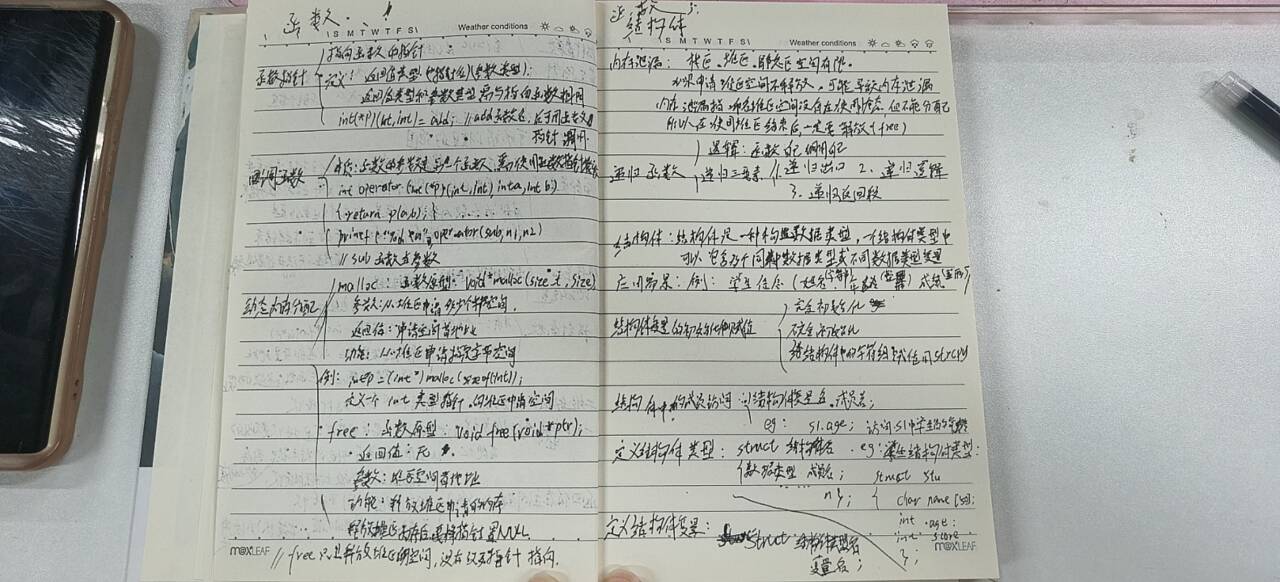 函数.
S M T W T F S
Weather conditions
指向函数的指针
函数指针
定义: 返回值类型 (*指针名)(参数类型);
返回值类型和参数类型需与指向函数相同
int(*p)(int,int)= add; //add函数名, 
指针 调用.
回调函数
int operator (int(*p)(int,int) int a, int b)
{ return p(a,b); }
printf("%d \n", operator(sub,n1,n2)
// sub 函数名参数
malloc: 函数原型: void *malloc(size_t, size)
动态内存分配
参数: 从堆区申请多少个字节空间.
返回值: 申请空间首地址
功能: 从堆区申请指定字节空间
例: int *p = (int*)malloc(sizeof(int));
定义一个 int 类型指针, 向堆区申请空间
free: 函数原型: void free(void *ptr);
返回值: 无.
参数: 堆区空间首地址
功能: 释放堆区申请的内存
释放堆区内存后要将指针置NULL
// free 只是释放堆区的空间, 没有改变指针指向.
MOXLEAF
函数
结构体
S M T W T F S
Weather conditions
内存泄漏: 栈区、堆区、空间有限.
如果申请堆区空间不释放, 可能导致内存泄漏
内存泄漏指 堆区空间没有在使用状态, 但不能分配
所以在使用堆区结束后, 一定要释放(free)
逻辑: 函数自己调用自己
递归函数
递归三要素 1. 递归出口 2. 递归逻辑
3. 递归返回段
结构体: 结构体是一种构造数据类型, 一个结构体类型中
可以包含多个同种数据类型或不同数据类型类型
应用场景: 例: 学生信息 (姓名(字符串) 年龄(整型) 成绩
结构体变量的初始化和赋值
完全初始化
不完全初始化
给结构体中的字符组赋值用strcpy
结构体中的成员访问: 结构体变量名.成员名;
eg: s1.age; 访问s1中学生的年龄
定义结构体类型: struct 结构体名 eg: 学生结构体类型:
{ 数据类型 成员名; struct stu
n }; { char name[50];
int age;
int score
};
定义结构体变量: struct 结构体类型名
变量名;
MOXLEAF